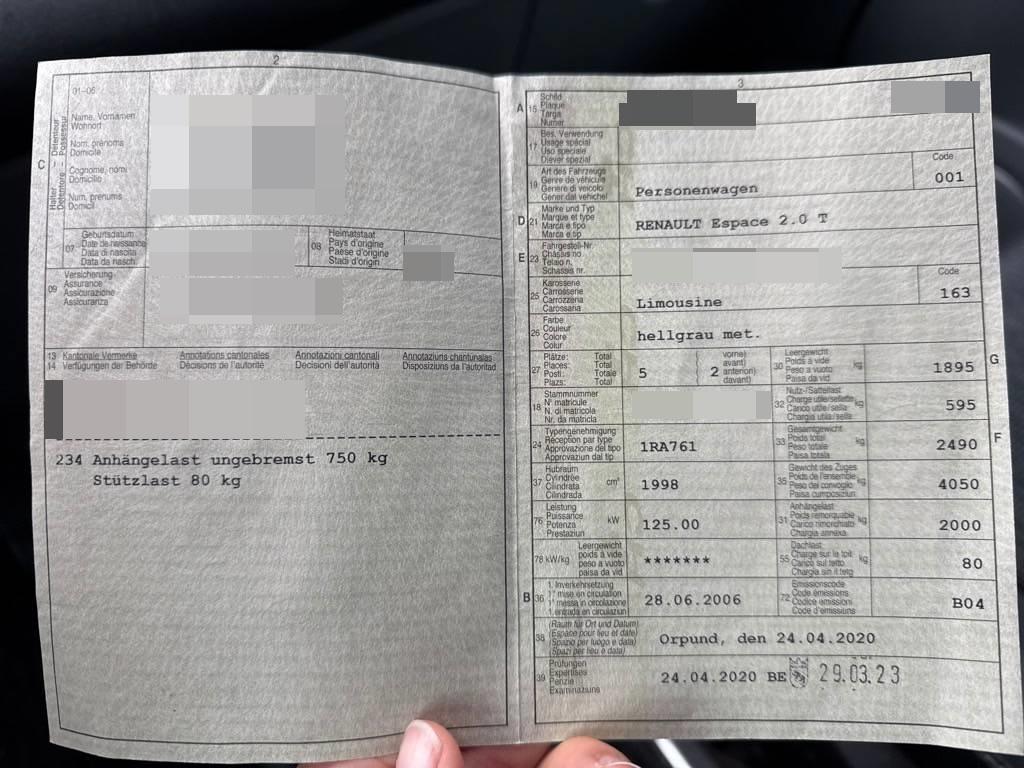 2
01-06
Détenteur
Possessur
Halter
Detentore
C
Name, Vornamen
Wohnort
Nom, prénoms
Domicile
Cognome, nomi
Domicilio
Num, prenums
Domicil
07
Geburtsdatum
Date de naissance
Data di nascita
Data da nasch.
08
Heimatstaat
Pays d'origine
Paese d'origine
Stadi d'origin
09
Versicherung
Assurance
Assicurazione
Assicuranza
13 Kantonale Vermerke Annotations cantonales Annotazioni cantonali Annotaziuns chantunalas
14 Verfügungen der Behörde Décisions de l'autorité Decisioni dell'autorità Disposiziuns da l'autoritad
234 Anhängelast ungebremst 750 kg
Stützlast 80 kg
3
A 15
Schild
Plaque
Targa
Numer
17
Bes. Verwendung
Usage spécial
Uso speciale
Diever spezial
19
Art des Fahrzeugs
Genre de véhicule
Genere di veicolo
Gener dal vehichel
Personenwagen
Code
001
D 21
Marke und Typ
Marque et type
Marca e tipo
Marca e tip
RENAULT Espace 2.0 T
E 23
Fahrgestell-Nr.
Châssis no
Telaio n.
Schassis nr.
25
Karosserie
Carrosserie
Carrozzeria
Carossaria
Limousine
Code
163
26
Farbe
Couleur
Colore
Colur
hellgrau met.
27
Plätze: Total
Places: Total
Posti: Totale
Plazs: Total
5
2
vorne)
avant)
anteriori)
davant)
30
Leergewicht
Poids à vide
Peso a vuoto
Paisa da vid
kg
1895
G
18
Stammnummer
N° matricule
N. di matricola
Nr. da matricla
32
Nutz-/Sattellast
Charge utile/sellette
Carico utile/sella
Chargia utila/sella
kg
595
24
Typengenehmigung
Réception par type
Approvazione del tipo
Approvaziun dal tip
1RA761
33
Gesamtgewicht
Poids total
Peso totale
Paisa totala
kg
2490
F
37
Hubraum
Cylindrée
Cilindrata
Cilindrada
cm³
1998
35
Gewicht des Zuges
Poids de l'ensemble
Peso del convoglio
Paisa cumposiziun
kg
4050
76
Leistung
Puissance
Potenza
Prestaziun
kW
125.00
31
Anhängelast
Poids remorquable
Carico rimorchiato
Chargia annexa
kg
2000
78 kW/kg
Leergewicht
poids à vide
peso a vuoto
paisa da vid
*******
55
Dachlast
Charge sur le toit
Carico sul tetto
Chargia sin il tetg
kg
80
B 36
1. Inverkehrsetzung
1re mise en circulation
1a messa in circolazione
1. entrada en circulaziun
28.06.2006
72
Emissionscode
Code émissions
Codice emissioni
Code d'emissiuns
B04
38
(Raum für Ort und Datum)
(Espace pour lieu et date)
(Spazio per luogo e data)
(Spazi per lieu e data)
Orpund, den 24.04.2020
39
Prüfungen
Expertises
Perizie
Examinaziuns
24.04.2020 BE 29.03.23